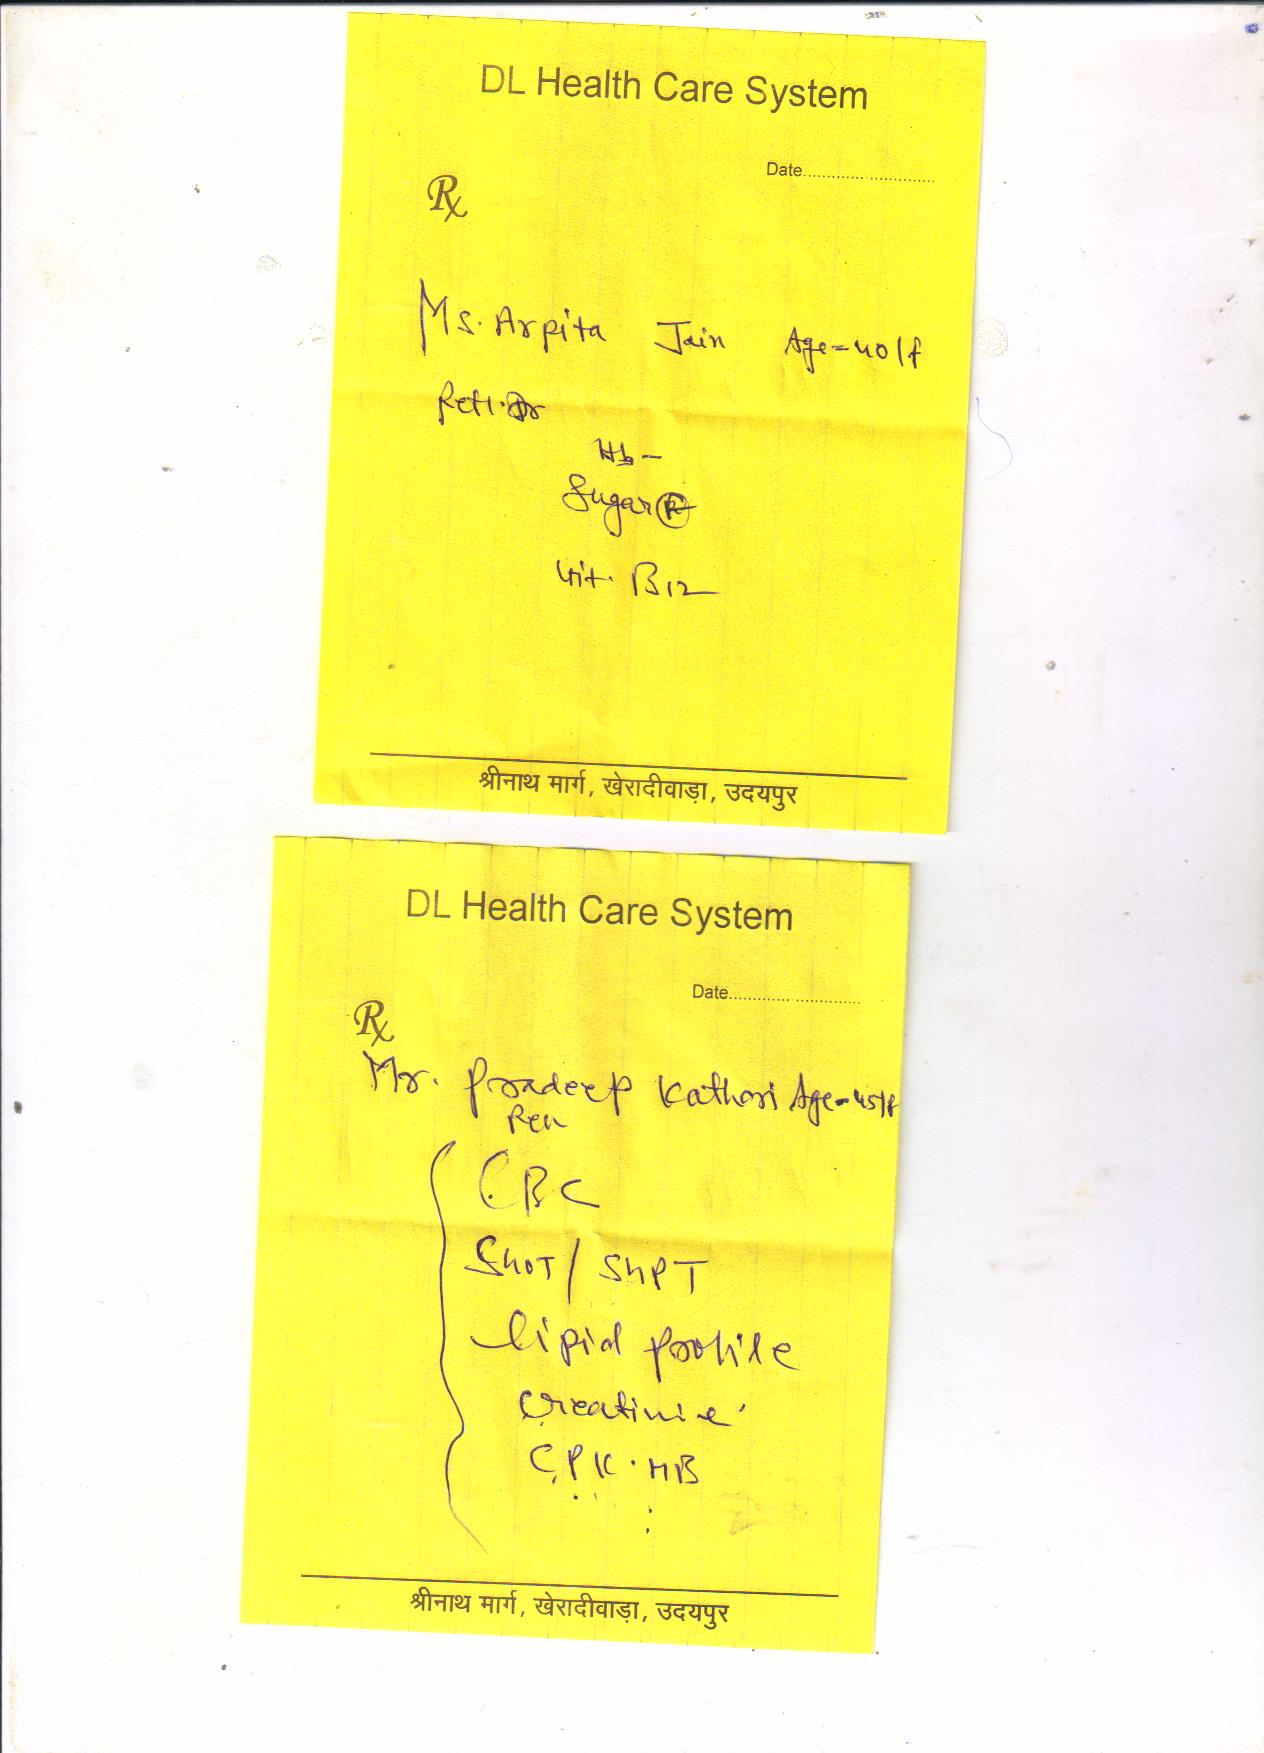 DL Health Care System
Date............................
Rx
Ms. Arpita Jain Age=40/f
Hb -
Sugar (R)
Vit. B12
श्रीनाथ मार्ग, खेरादीवाड़ा, उदयपुर
DL Health Care System
Date............................
Rx
Mr. Pradeep Kathori Age=45/f
CBC
SGOT / SGPT
lipid profile
Creatinine
CPK.MB
श्रीनाथ मार्ग, खेरादीवाड़ा, उदयपुर